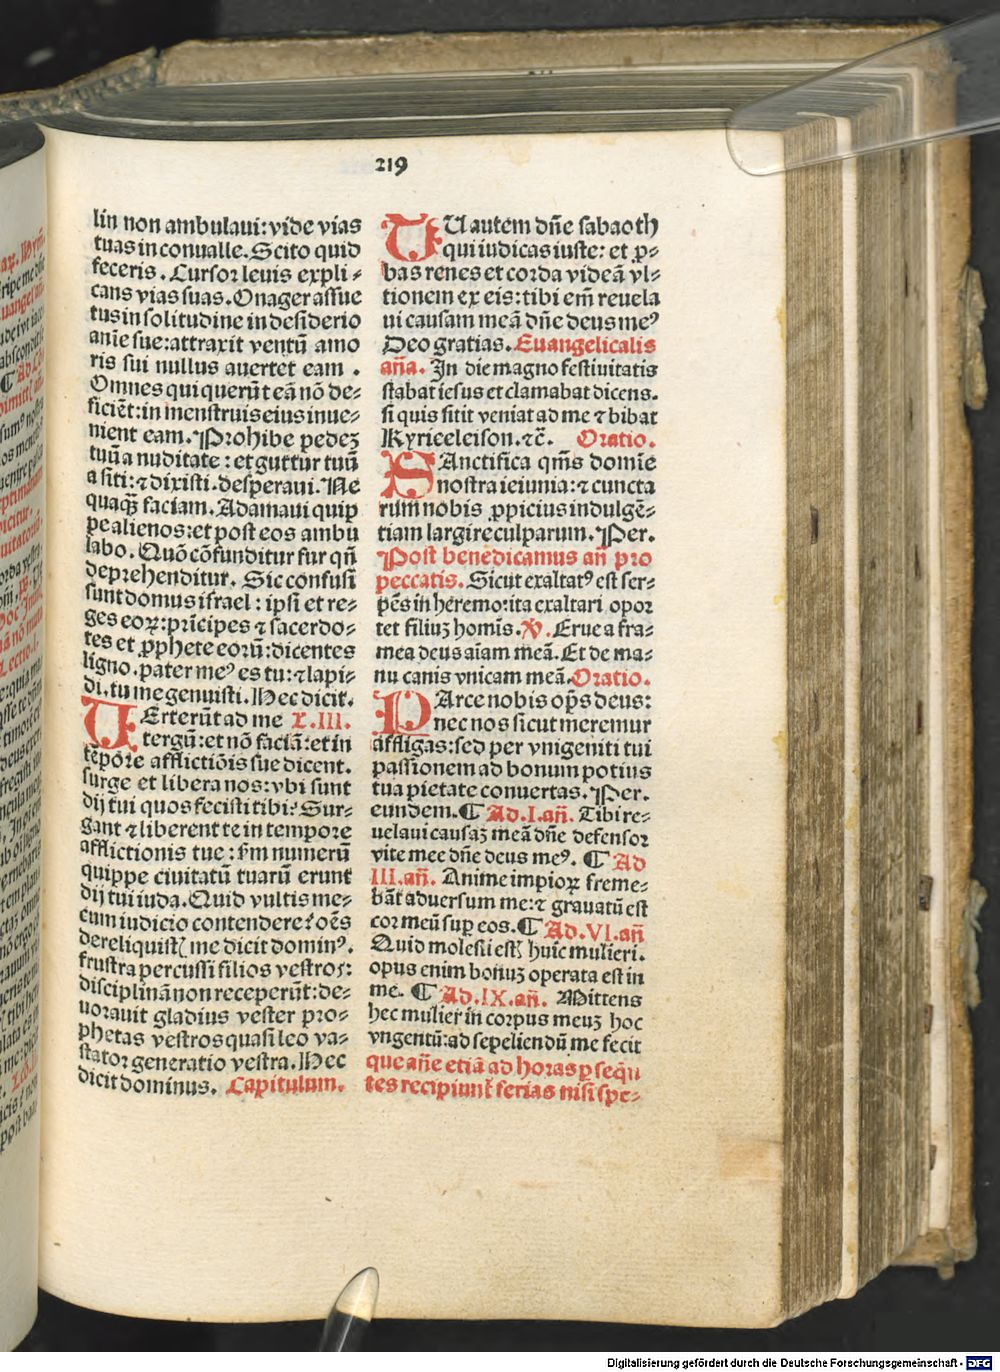 219
lin non ambulaui: vide vias
tuas in conualle. Scito quid
feceris. Cursor leuis expli⸗
cans vias suas. Onager assue
tus in solitudine in desiderio
anīe sue: attraxit ventū amo
ris sui nullus auertet eam.
Omnes qui querūt eā nō de⸗
ficiēt: in menstruis eius inue⸗
nient eam. Prohibe pedeꝫ
tuū a nuditate: et guttur tuū
a siti: ⁊ dixisti. desperaui. Ne
quaqꝫ faciam. Adamaui quip
pe alienos: et post eos ambu
labo. Quō cōfunditur fur qn̄
deprehenditur. Sic confusi
sunt domus israel: ipsi et re⸗
ges eoꝝ: prīcipes ⁊ sacerdo⸗
tes et ꝓphete eorū: dicentes
ligno. pater meꝰ es tu: ⁊ lapi⸗
di. tu me genuisti. Hec dicit.
VErterūt ad me L. III.
tergū: et nō faciā: et in
tēpore afflictiōis sue dicent.
surge et libera nos: vbi sunt
dij tui quos fecisti tibi? Sur⸗
gant ⁊ liberent te in tempore
afflictionis tue: ẜm numerū
quippe ciuitatū tuarū erunt
dij tui iuda. Quid vultis me⸗
cum iudicio contendere? oēs
dereliquistꝭ me dicit dominꝰ.
frustra percussi filios vestros:
disciplinā non receperūt: de⸗
uorauit gladius vester pro⸗
phetas vestros quasi leo va⸗
stator generatio vestra. Hec
dicit dominus. Capitulum.
TU autem dn̄e sabaoth
qui iudicas iuste: et ꝓ⸗
bas renes et corda videā vl⸗
tionem ex eis: tibi em̄ reuela
ui causam meā dn̄e deus meꝰ
Deo gratias. Euangelicalis
an̄a. In die magno festiuitatis
stabat iesus et clamabat dicens.
si quis sitit veniat ad me ⁊ bibat
Kyrieeleison. ⁊c̄. Oratio.
SAnctifica qm̄s domīe
nostra ieiunia: ⁊ cuncta
rum nobis ꝓpicius indulgē⸗
tiam largire culparum. Per.
Post benedicamus an̄ pro
peccatis. Sicut exaltatꝰ est ser⸗
pēs in heremo: ita exaltari opor
tet filiuꝫ homīs. V̄. Erue a fra⸗
mea deus aīam meā. Et de ma⸗
nu canis vnicam meā. Oratio.
PArce nobis op̄s deus:
nec nos sicut meremur
affligas: sed per vnigeniti tui
passionem ad bonum potius
tua pietate conuertas. Per.
eundem. ¶ Ad. I. an̄. Tibi re⸗
uelaui causaꝫ meā dn̄e defensor
vite mee dn̄e deus meꝰ. ¶ Ad
III. an̄. Anime impioꝝ freme⸗
bāt aduersum me: ⁊ grauatū est
cor meū sup eos. ¶ Ad. VI. an̄
Quid molesti estꝭ huic mulieri.
opus enim bonuꝫ operata est in
me. ¶ Ad. IX. an̄. Mittens
hec mulier in corpus meuꝫ hoc
vngentū: ad sepeliendū me fecit
que an̄e etiā ad horas ꝑ sequ
tes recipiunt ferias nisi spe⸗
Digitalisierung gefördert durch die Deutsche Forschungsgemeinschaft - DFG